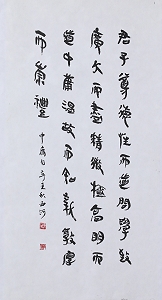 君子尊德性而道問學致
廣大而盡精微極高明而
道中庸溫故而知新敦厚
崇禮
中庸句